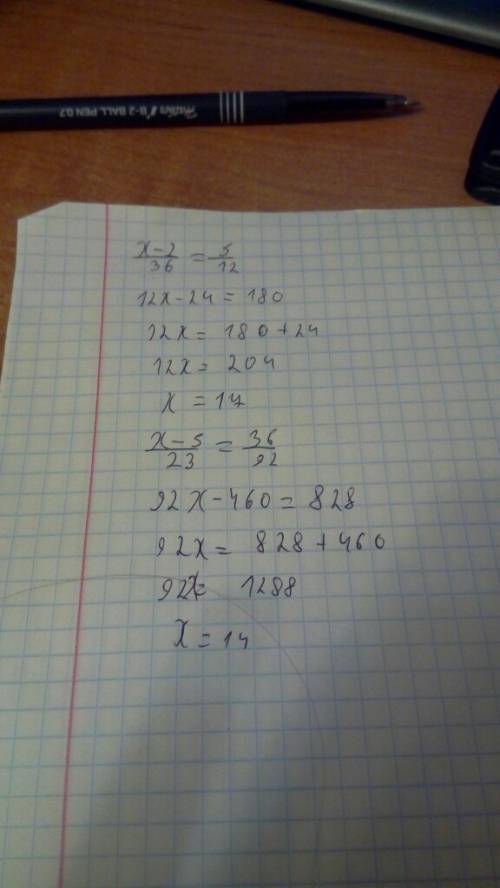 B-2 BALL PEN 0.7
x-2/36 = 5/12
12x-24 = 180
12x = 180+24
12x = 204
x = 17
x-5/23 = 36/92
92x-460 = 828
92x = 828+460
92x = 1288
x = 14